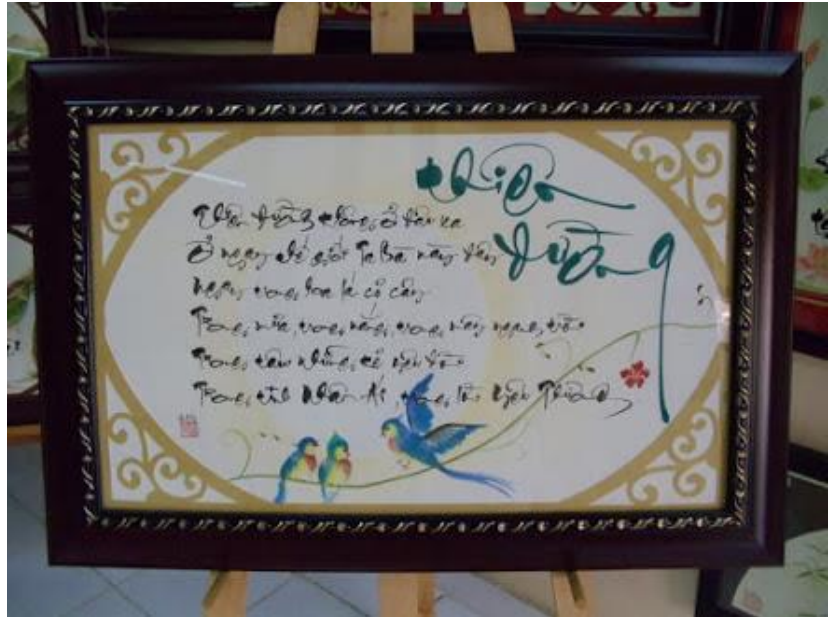 thiên
đường
Thiên đường không ở đâu xa
Ở ngay thế giới Ta Bà này đây
Ngay trong hoa lá cỏ cây
Trong mưa, trong nắng, trong mây ngang trời
Trong tâm những kẻ yêu đời
Trong tình Nhân Ái trong lời Yêu Thương